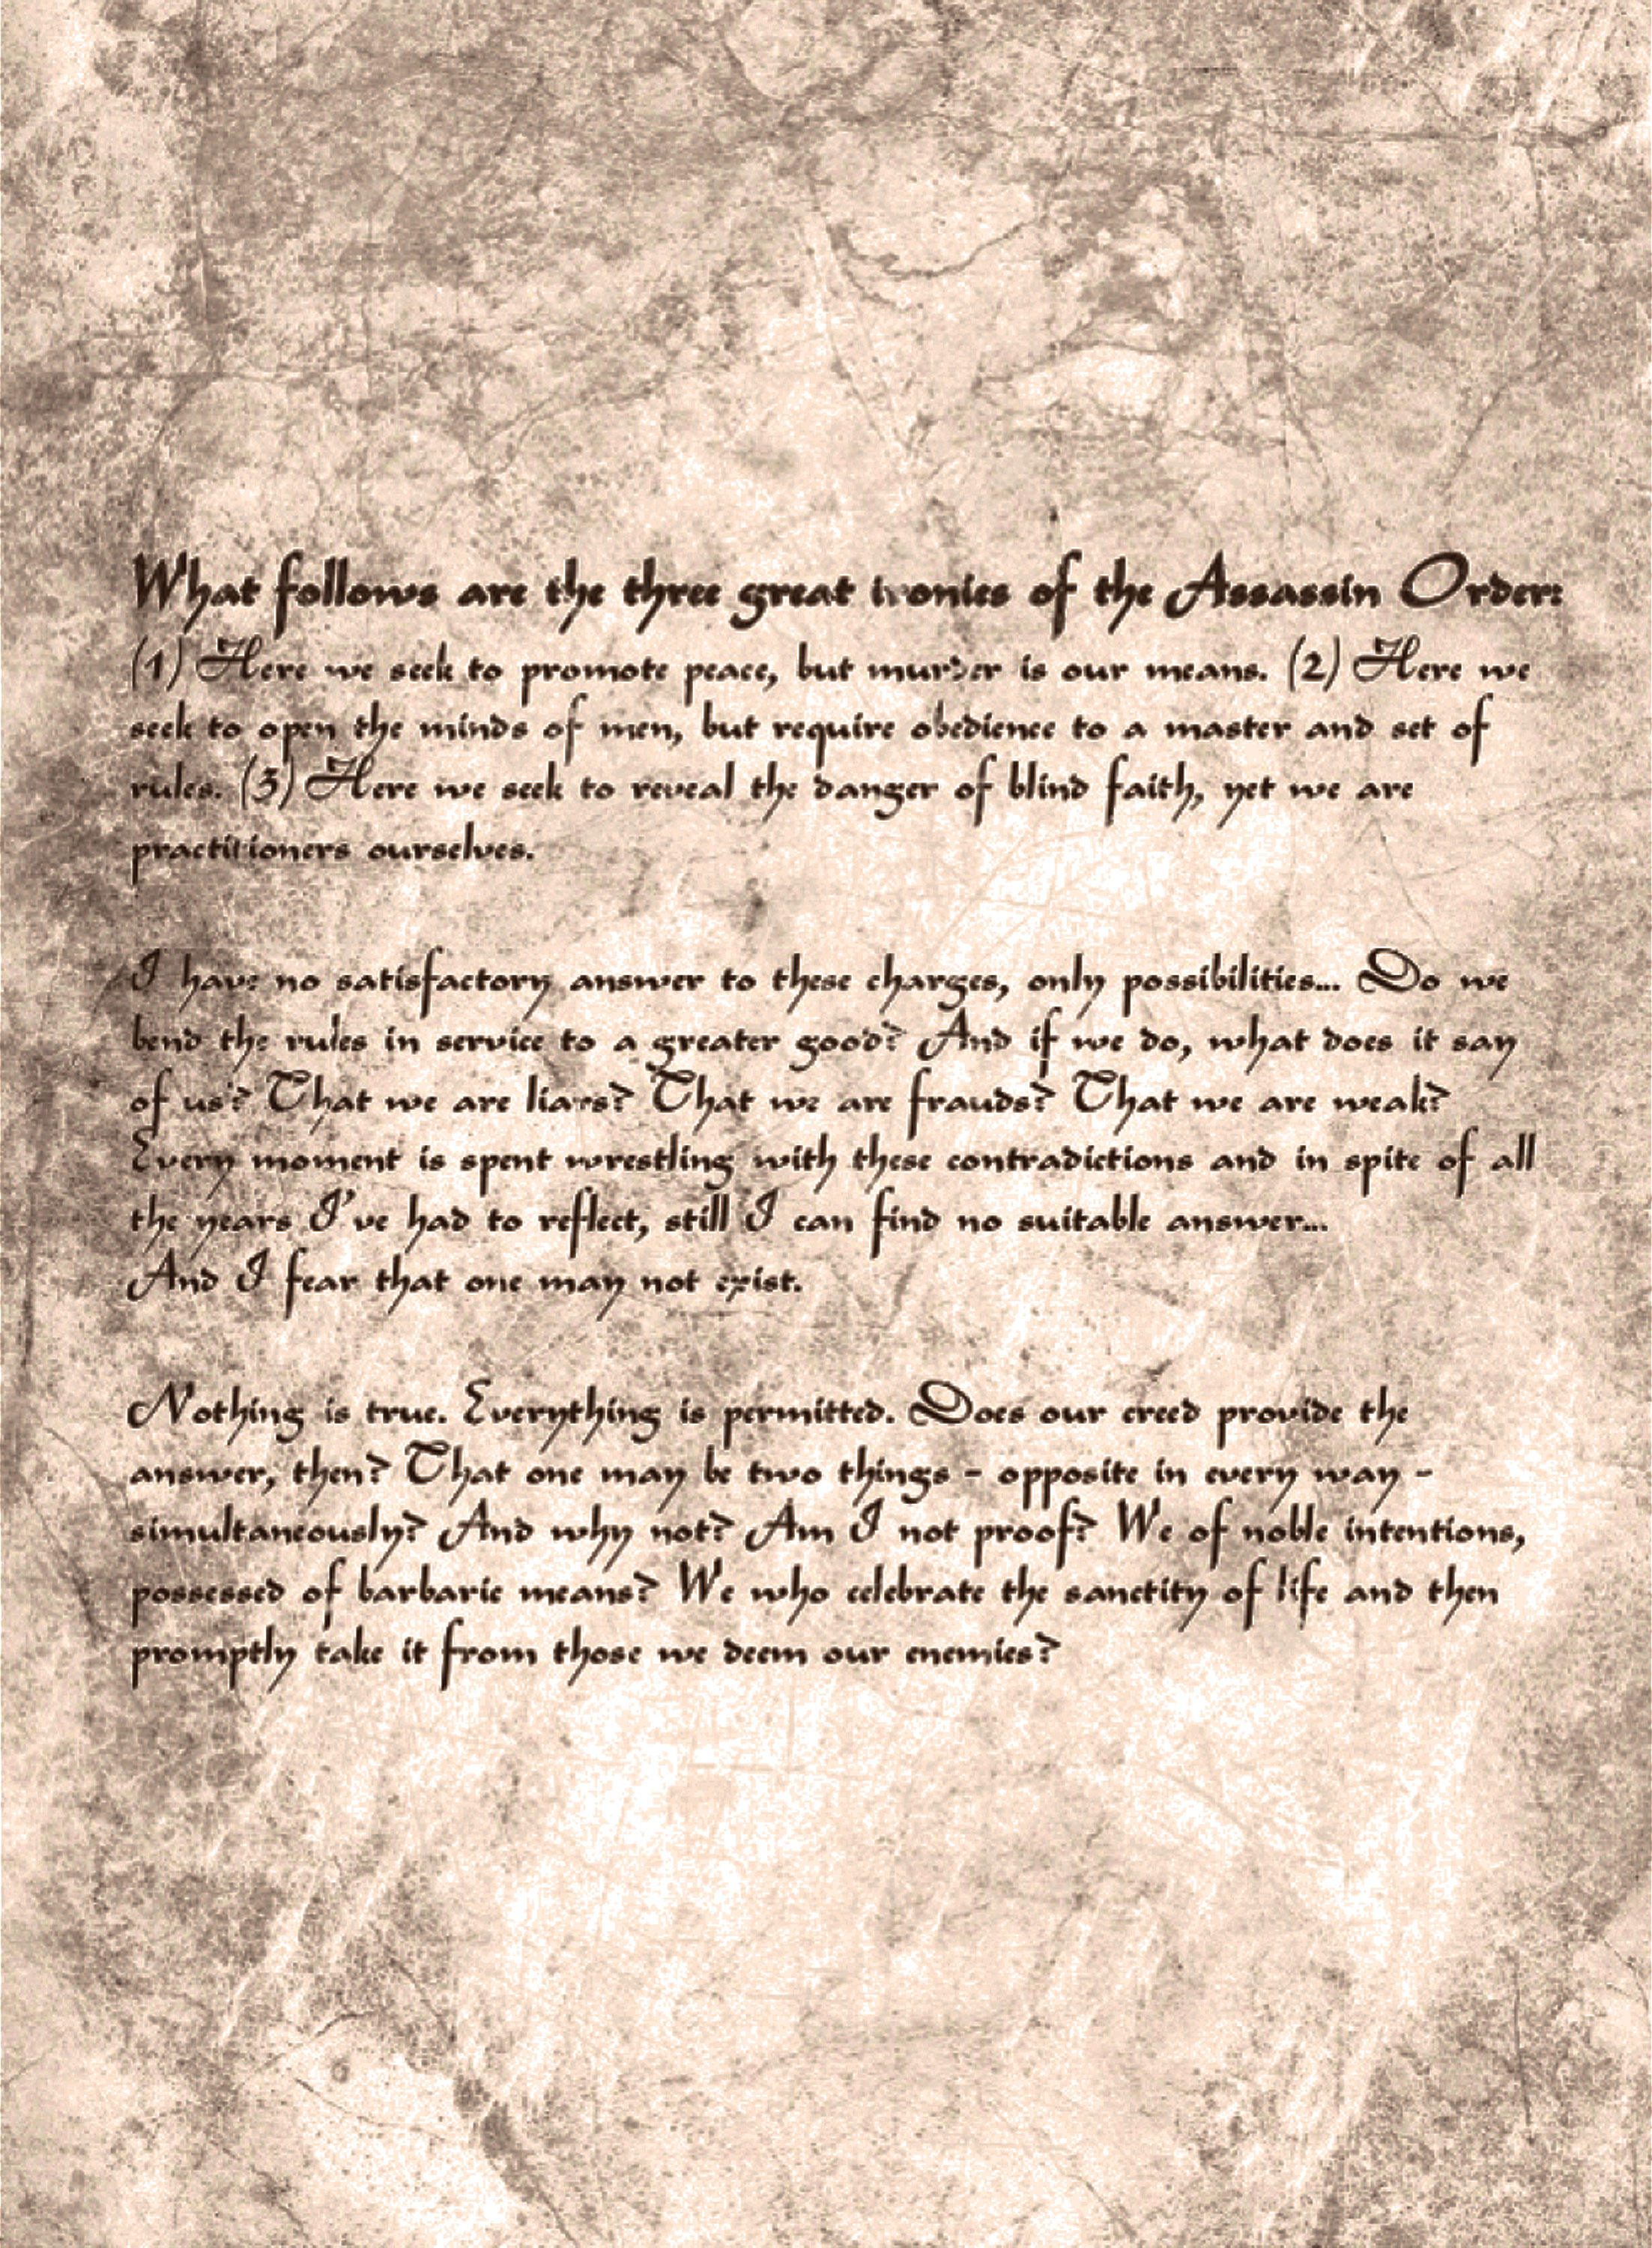 What follows are the three great ironies of the Assassin Order:
(1) Here we seek to promote peace, but murder is our means. (2) Here we
seek to open the minds of men, but require obedience to a master and set of
rules. (3) Here we seek to reveal the danger of blind faith, yet we are
practitioners ourselves.
I have no satisfactory answer to these charges, only possibilities... Do we
bend the rules in service to a greater good? And if we do, what does it say
of us? That we are liars? That we are frauds? That we are weak?
Every moment is spent wrestling with these contradictions and in spite of all
the years I've had to reflect, still I can find no suitable answer...
And I fear that one may not exist.
Nothing is true. Everything is permitted. Does our creed provide the
answer, then? That one may be two things - opposite in every way -
simultaneously? And why not? Am I not proof? We of noble intentions,
possessed of barbaric means? We who celebrate the sanctity of life and then
promptly take it from those we deem our enemies?